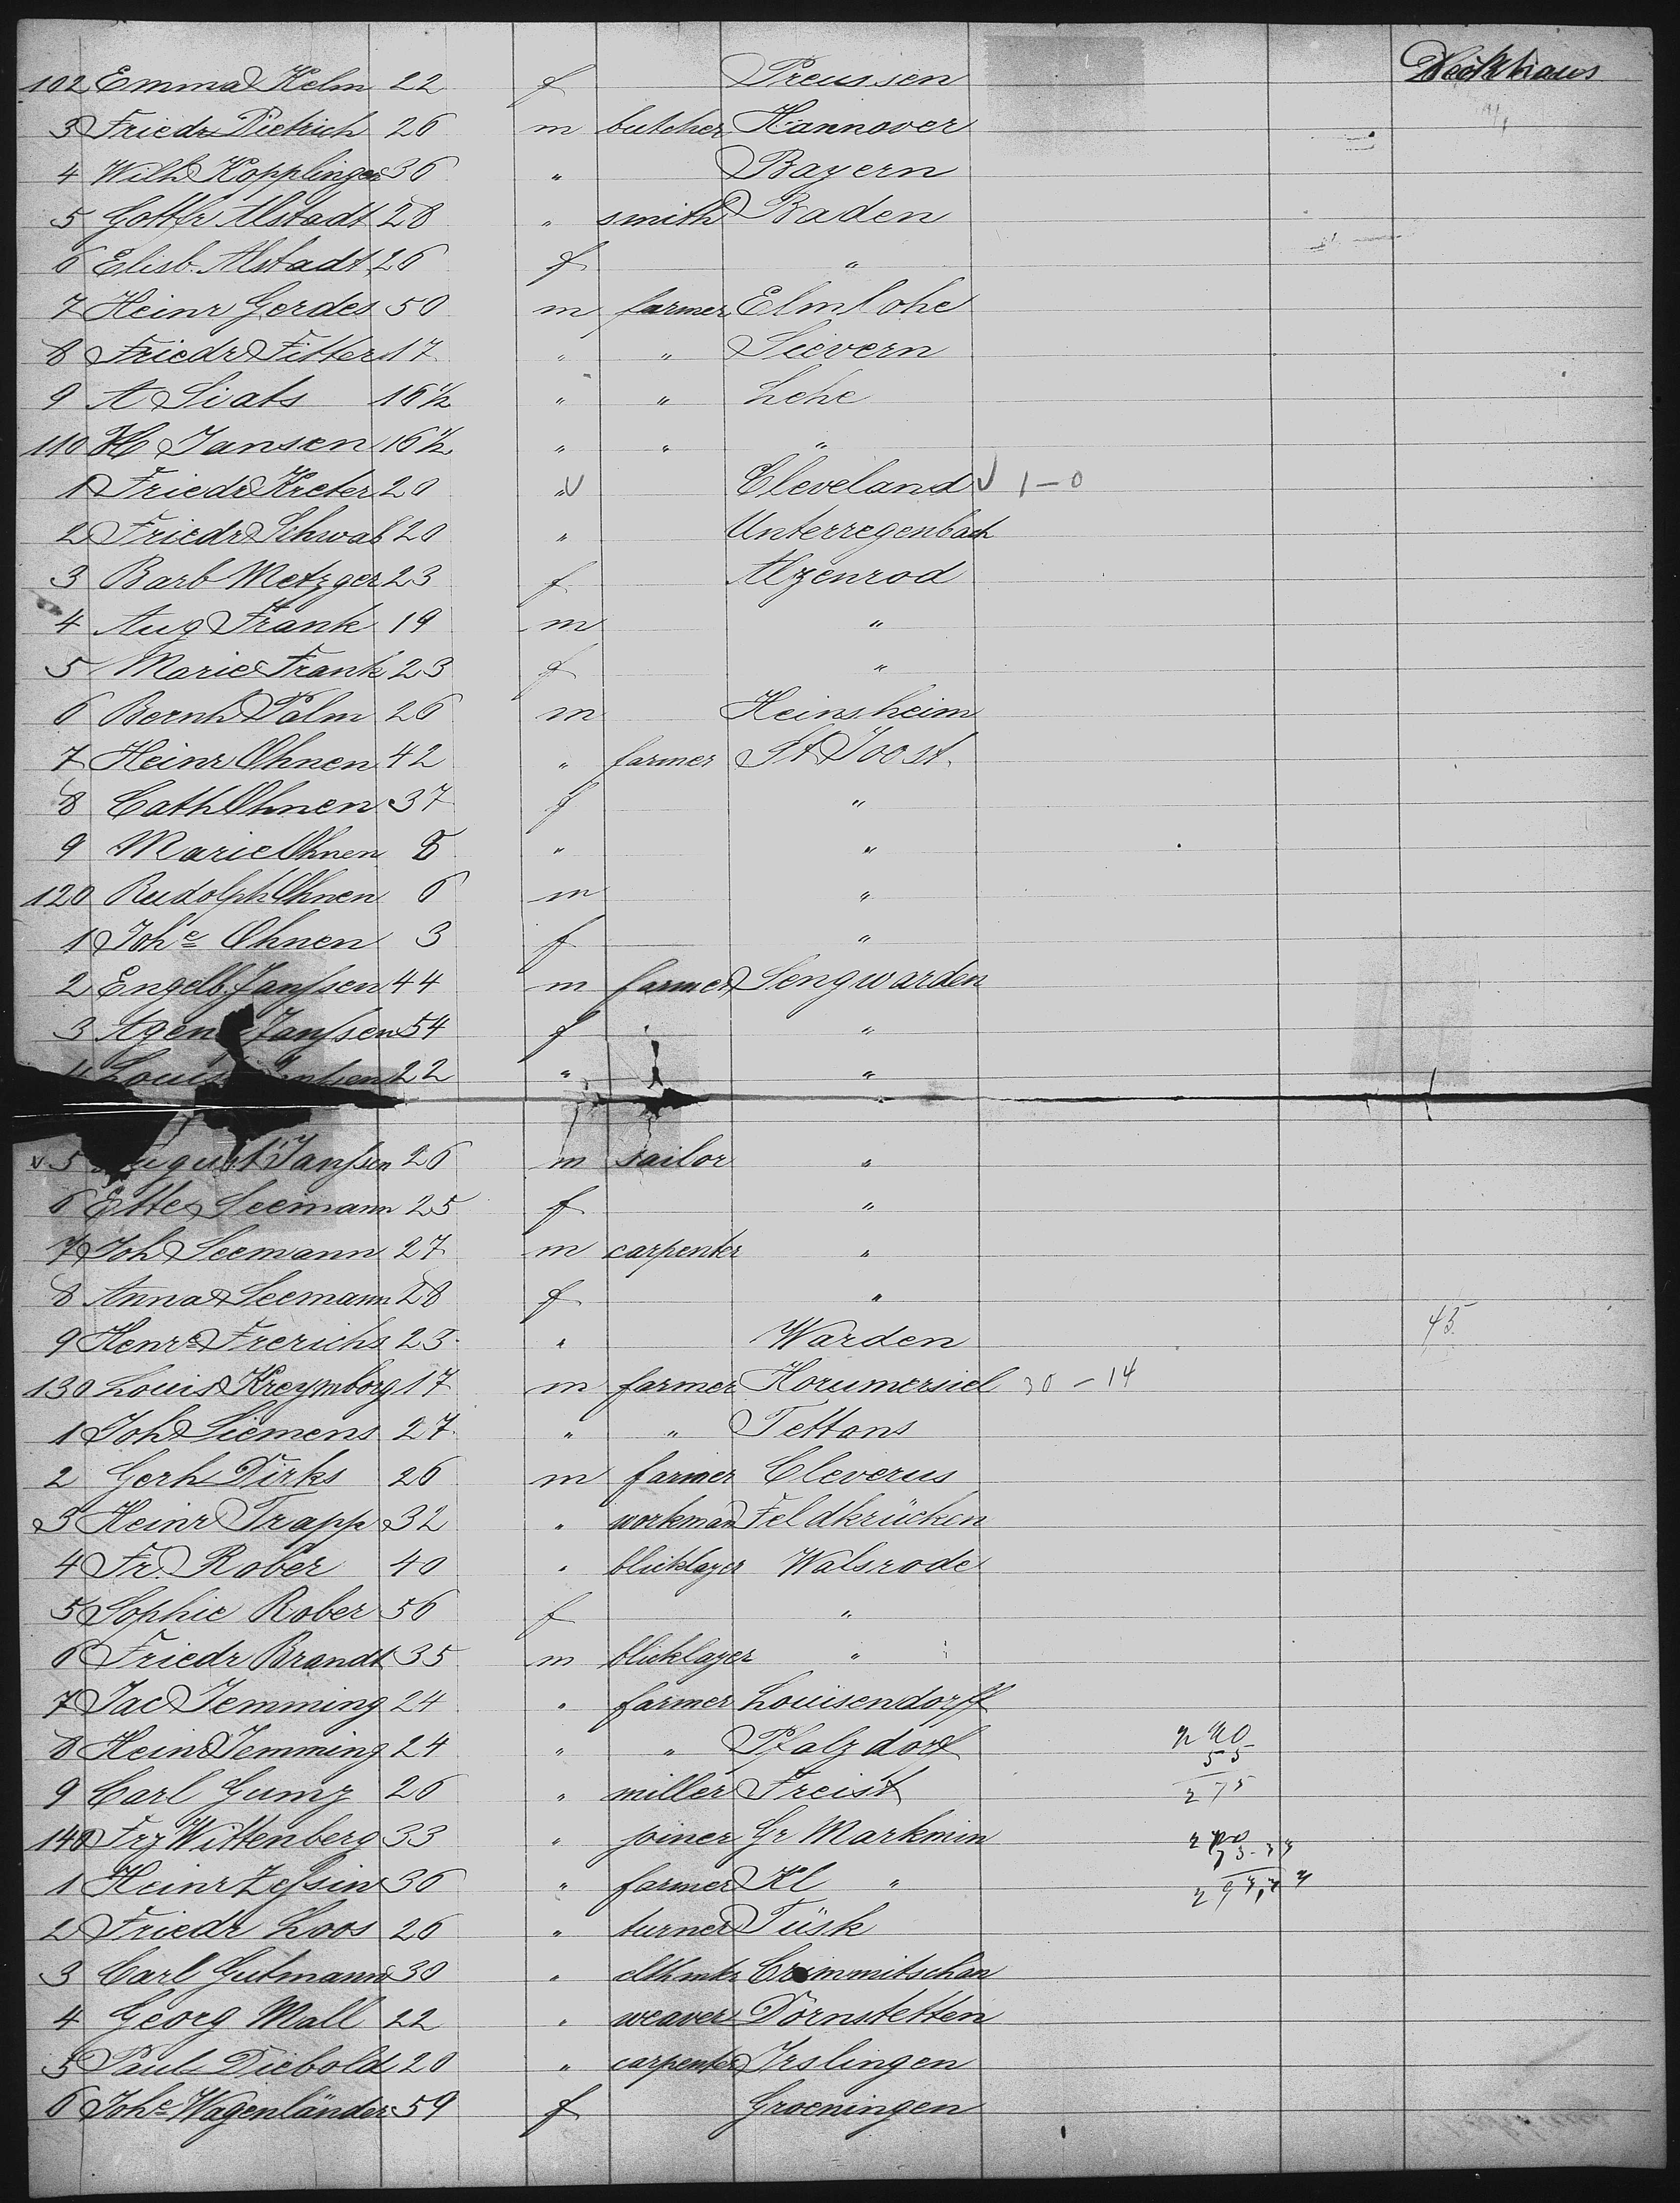 102 Emma Helm 22 f Preussen Deckhaus
3 Friedr Dietrich 26 m butcher Hannover
4 Wilh Kopplinger 36 " Bayern
5 Gottfr Alstadt 28 " smith Baden
6 Elisb. Alstadt 26 f "
7 Heinr Gerdes 50 m farmer Elmlohe
8 Friedr Fitter 17 " " Sievern
9 A Siats 16½ " " Lehe
110 H Jansen 16½ " " "
1 Friedr Kreter 20 " Cleveland 1-0
2 Friedr Schwab 20 " Unterregenbach
3 Barb Metzger 23 f Alzenrod
4 Aug Frank 19 m "
5 Marie Frank 23 f "
6 Bernh Palm 26 m Heinsheim
7 Heinr Ohnen 42 " farmer St Joost.
8 Cath Ohnen 37 f "
9 Marie Ohnen 8 " "
120 Rudolph Ohnen 6 m "
1 Joh͟e Ohnen 3 f "
2 Engelb. Janssen 44 m farmer Sengwarden
3 Janssen 54 f "
4 22 " "
5 August Janssen 26 m sailor "
6 Ette Seemann 25 f "
7 Joh Seemann 27 m carpenter "
8 Anna Seemann 28 f "
9 Henre Frerichs 23 " Warden 45
130 Louis Kreymborg 17 m farmer Horumersiel 30-14
1 Joh Siemens 27 " " Tettans
2 Gerh Dirks 26 m farmer Cleverus
3 Heinr Trapp 32 " workman Feldkrücken
4 Fr. Rober 40 " blicklayer Walsrode
5 Sophie Rober 56 f "
6 Friedr Brandt 35 m blicklayer "
7 Jac Jemming 24 " farmer Louisendorff
8 Heinr Jemming 24 " " Pfalzdorf
9 Carl Gumz 26 " miller Freist 275
140 Frz Wittenberg 33 " joiner Gr Markmin
1 Heinr Zessin 36 " farmer Kl "
2 Friedr Loos 26 " turner Tüsk
3 Carl Gutmann 30 " clthmkr Crimmitschau
4 Georg Mall 22 " weaver Dornstetten
5 Paul Diebold 20 " carpenter Irslingen
6 Johe Wagenländer 59 f Groeningen